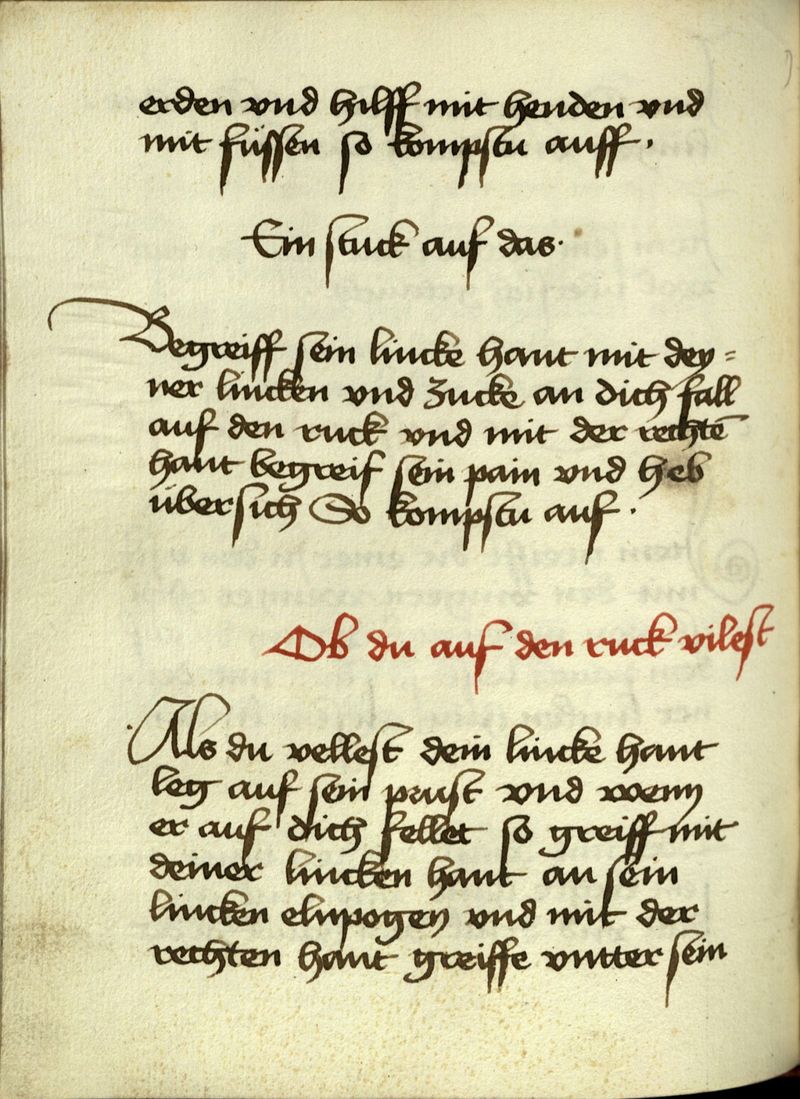 erden vnd hilff mit henden vnd
mit füssen so kompstu auff ·
Ein stuck auf das ·
Begreiff sein lincke hant mit dey=
ner lincken vnd zucke an dich fall
auf den ruck vnd mit der rechtē
hant begreif sein pain vnd heb
übersich So kompstu auf ·
Ob du auf den ruck vilest
Als du vellest dein lincke hant
leg auf sein prust vnd wenn
er auf dich fellet so greiff mit
deiner lincken hant an sein
lincken elnpogen vnd mit der
rechten hant greiffe vntter sein